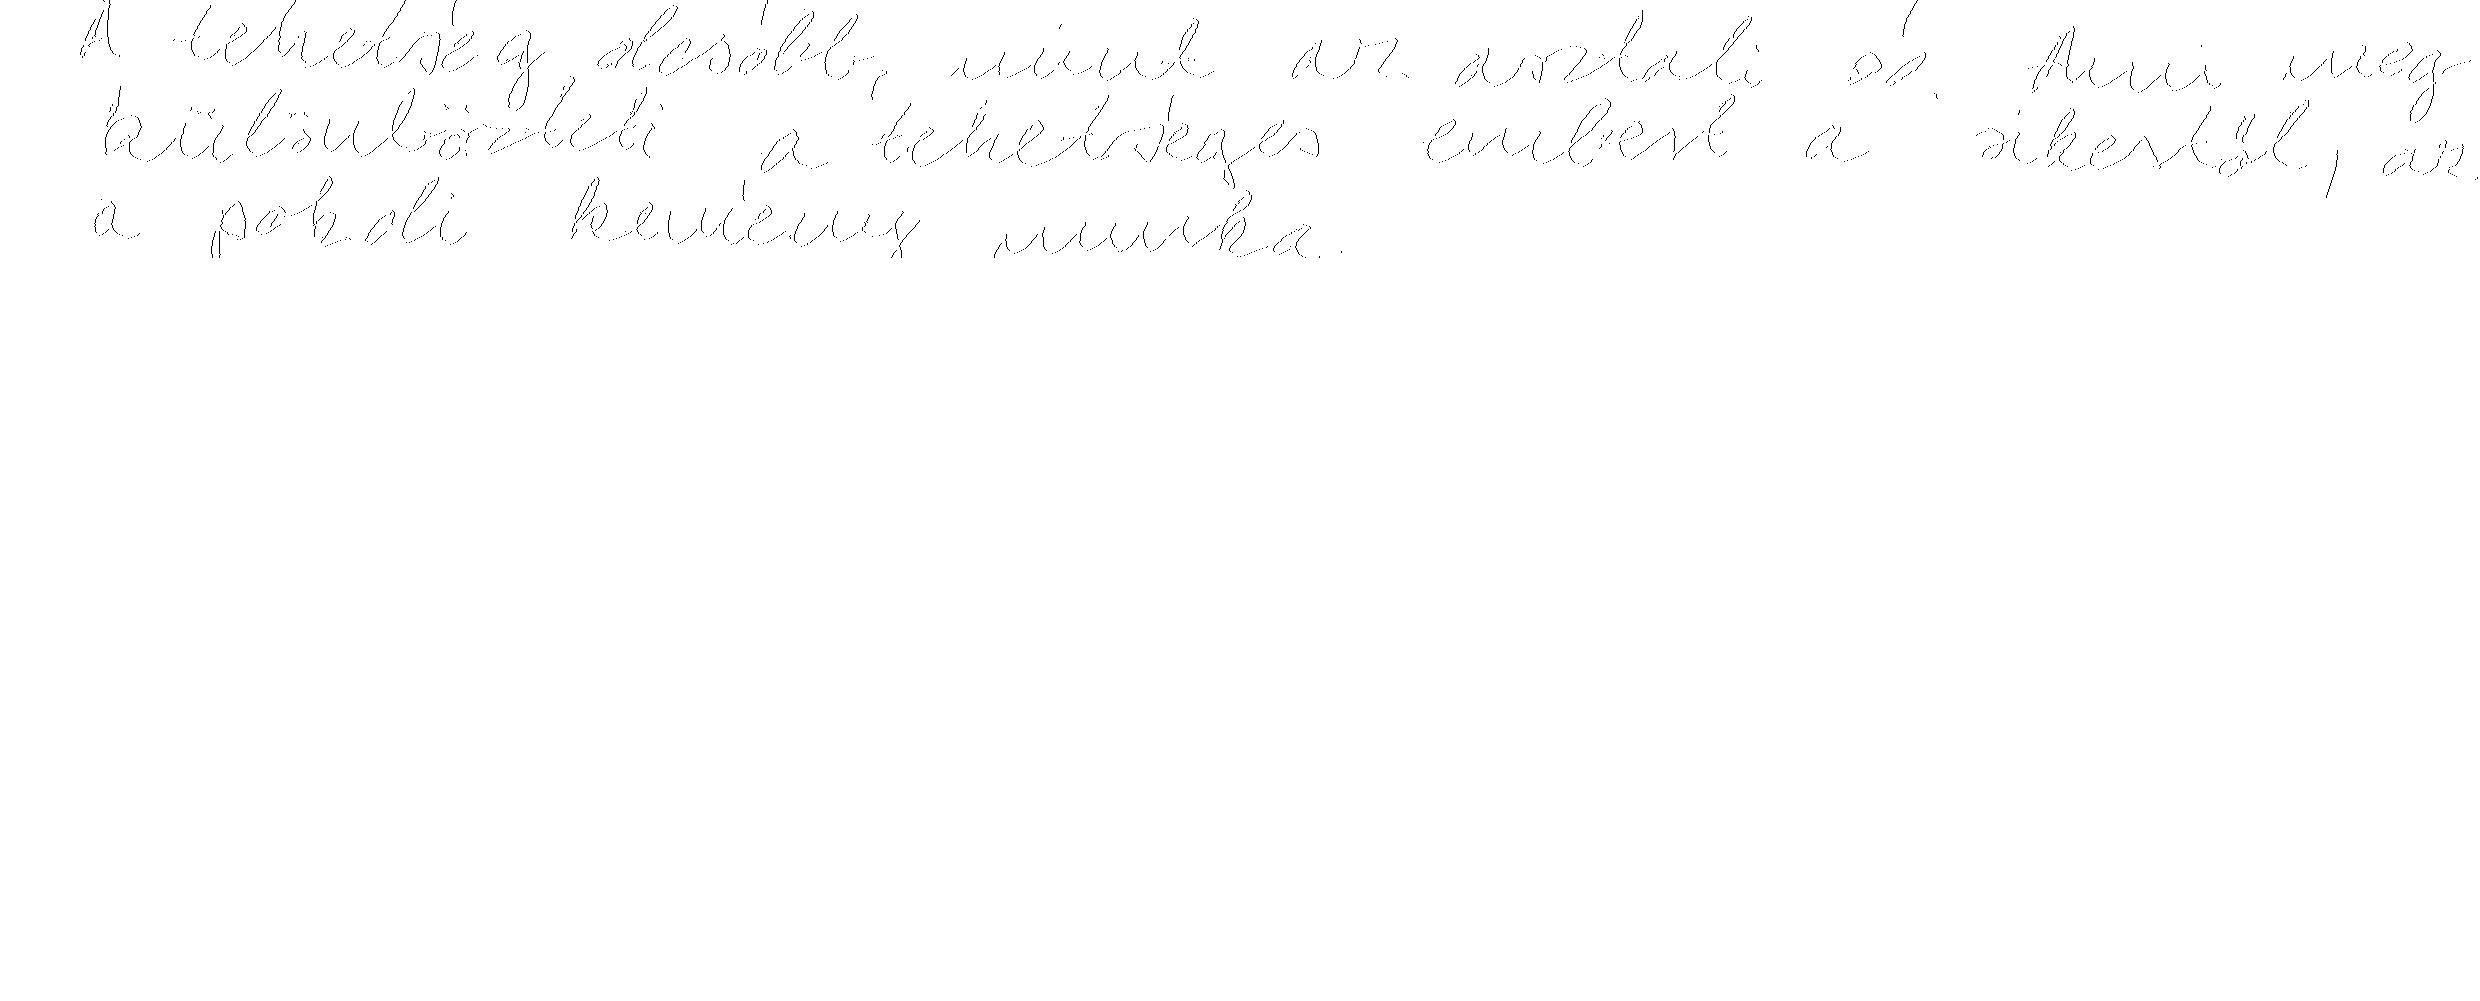 A tehetség olcsóbb, mint az asztali só. Ami meg-
különbözteti a tehetséges embert a sikerestől, az
a pokoli kemény munka.